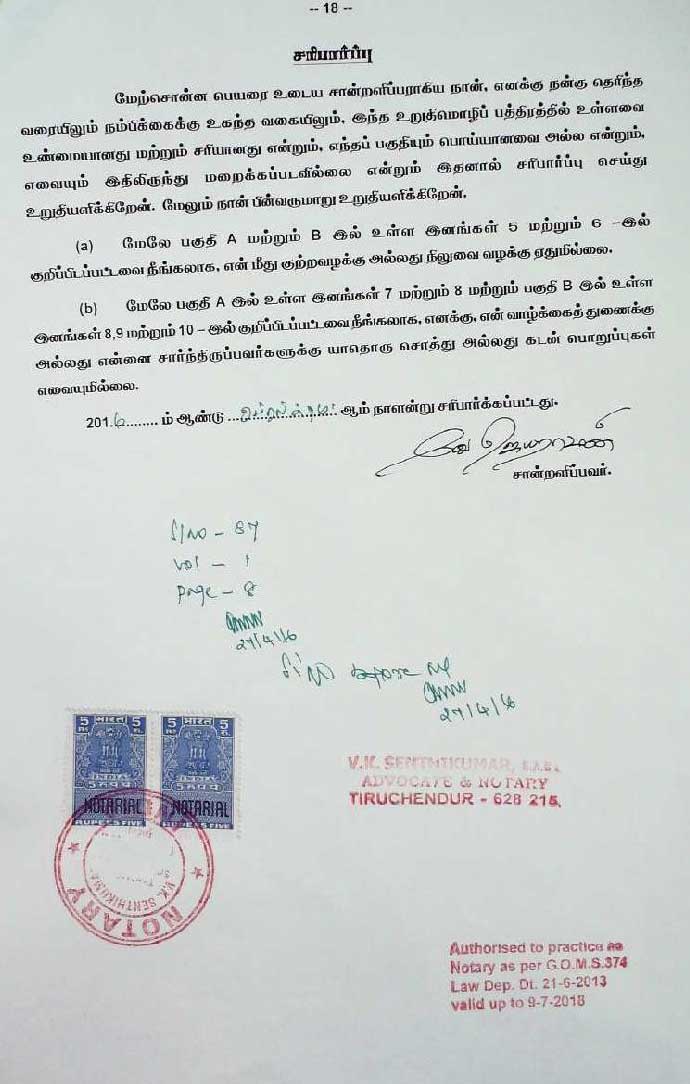 -- 18 --
சரிபார்ப்பு
மேற்சொன்ன பெயரை உடைய சான்றளிப்பராகிய நான், எனக்கு நன்கு தெரிந்த
வரையிலும் நம்பிக்கைக்கு உகந்த வகையிலும், இந்த உறுதிமொழிப் பத்திரத்தில் உள்ளவை
உண்மையானது மற்றும் சரியானது என்றும், எந்தப் பகுதியும் பொய்யானவை அல்ல என்றும்,
எவையும் இதிலிருந்து மறைக்கப்படவில்லை என்றும் இதனால் சரிபார்ப்பு செய்து
உறுதியளிக்கிறேன். மேலும் நான் பின்வருமாறு உறுதியளிக்கிறேன்.
(a) மேலே பகுதி A மற்றும் B இல் உள்ள இனங்கள் 5 மற்றும் 6 –இல்
குறிப்பிடப்பட்டவை நீங்கலாக, என் மீது குற்றவழக்கு அல்லது நிலுவை வழக்கு ஏதுமில்லை.
(b) மேலே பகுதி A இல் உள்ள இனங்கள் 7 மற்றும் 8 மற்றும் பகுதி B இல் உள்ள
இனங்கள் 8,9 மற்றும் 10 – இல் குறிப்பிடப்பட்டவை நீங்கலாக, எனக்கு, என் வாழ்க்கைத் துணைக்கு
அல்லது என்னை சார்ந்திருப்பவர்களுக்கு யாதொரு சொத்து அல்லது கடன் பொறுப்புகள்
எவையுமில்லை.
2016........ம் ஆண்டு ... ஆம் நாளன்று சரிபார்க்கப்பட்டது.
சான்றளிப்பவர்.
S/No - 87
Vol - 1
Page - 8
27/4/16
27/4/16
5 भारत 5 5 भारत 5
INDIA INDIA
NOTARIAL NOTARIAL
RUPEES FIVE RUPEES FIVE
V.K. SENTHIKUMAR
NOTARY
V.K. SENTHIKUMAR,
ADVOCATE & NOTARY
TIRUCHENDUR - 628 215.
Authorised to practice as
Notary as per G.O.M.S.374
Law Dep. Dt. 21-6-2013
valid up to 9-7-2018